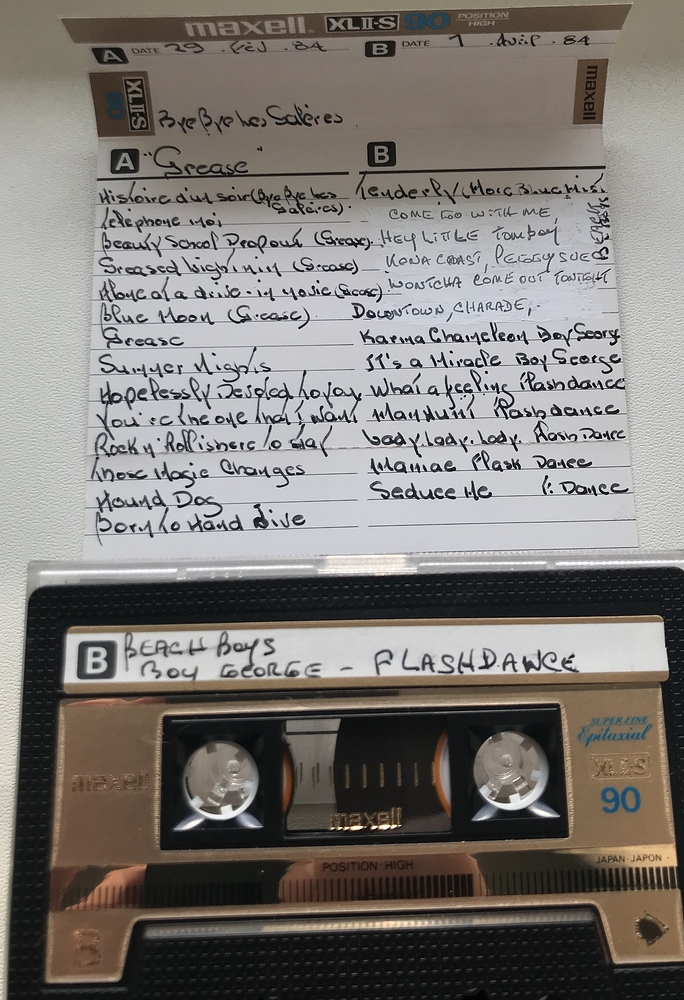 maxell XLII-S 90 POSITION HIGH
A DATE 29 . Fév . 84 B DATE 1 . Avip . 84
XLII-S 90 Bye Bye Les Galères maxell
A "Grease" B
Histoire d'un soir (Bye Bye Les Galères).
Téléphone moi
Beauty School Dropout (Grease).
Greased Lightnin (Grease)
Alone at a drive-in movie (Grease)
Blue Moon (Grease).
Grease
Summer Nights
Hopelessly Devoted to you
You're the one that i want
Rock n' Roll is here to stay
Those Magic Changes
Hound Dog
Born to Hand Jive
Tenderly
COME GO WITH ME,
HEY LITTLE TOMBOY
KONA COAST, PEGGY SUE
WONTCHA COME OUT TONIGHT
BEACH
DOWNTOWN, CHARADE,
Karma Chameleon Boy George
It's a Miracle Boy George
What a feeling flashdance
Manhunt flashdance
Lady, Lady, Lady. Flash Dance
Maniac Flash Dance
Seduce Me F. Dance
B BEACH BOYS
BOY GEORGE - FLASHDANCE
SUPER FINE
Epitaxial
maxell XLII-S
90
maxell
POSITION HIGH JAPAN·JAPON